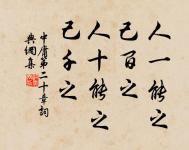 人一能之
己百之
人十能之
己千之
中庸第二十章詞
典網集